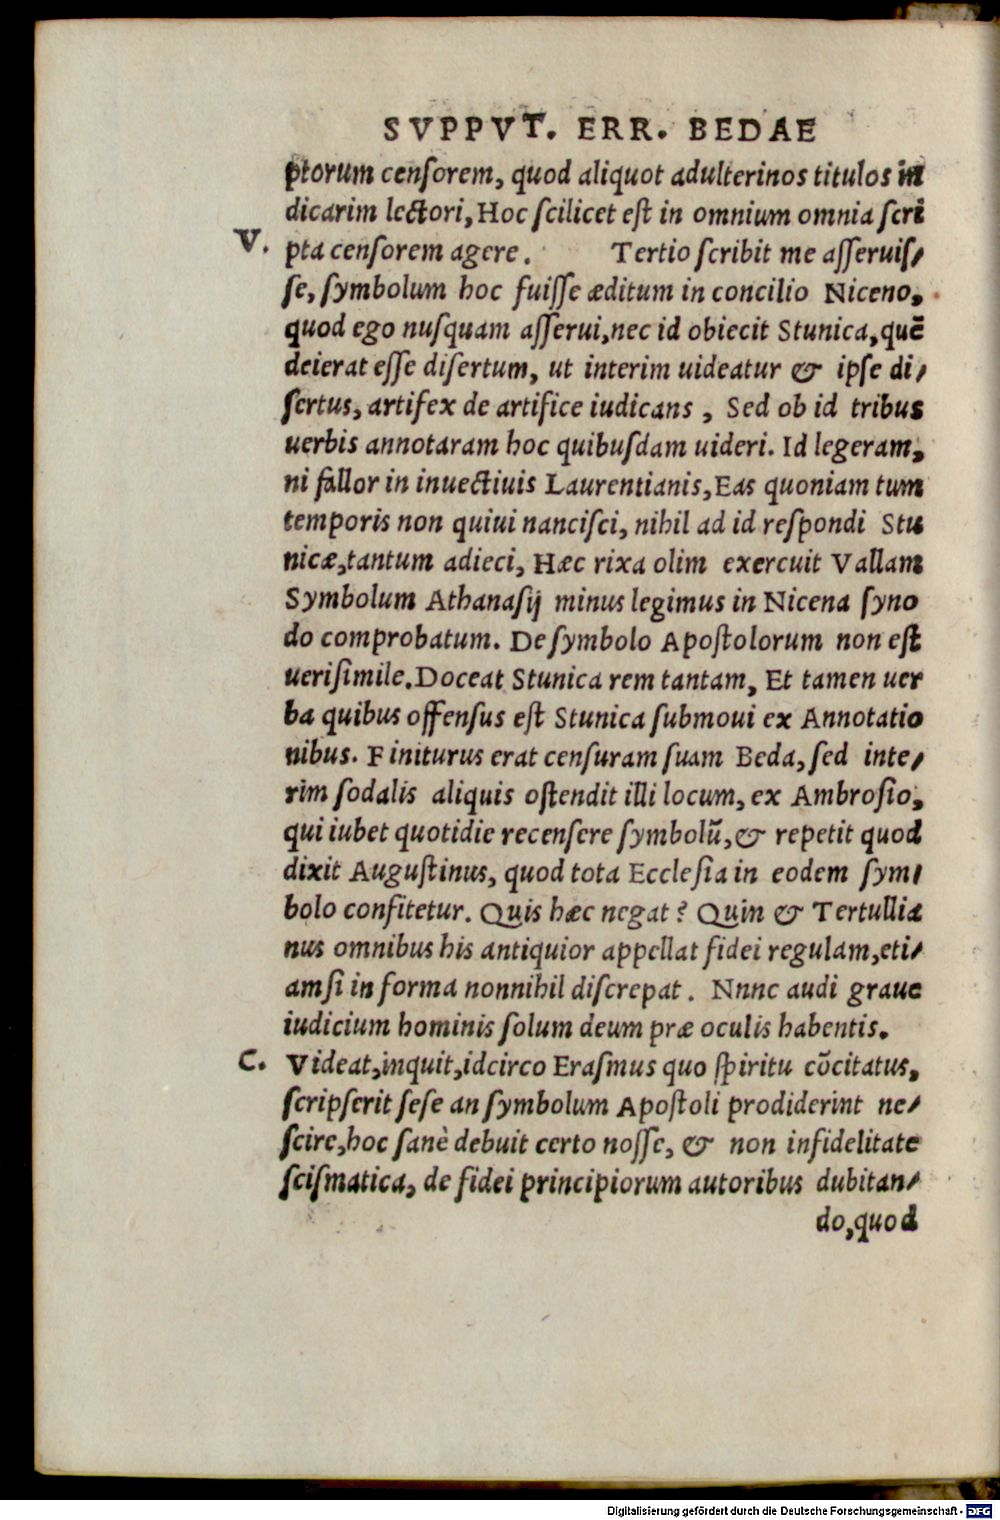 SVPPVT. ERR. BEDAE
ptorum censorem, quod aliquot adulterinos titulos in
dicarim lectori, Hoc scilicet est in omnium omnia scri
V. pta censorem agere. Tertio scribit me asseruis/
se, symbolum hoc fuisse æditum in concilio Niceno,
quod ego nusquam asserui, nec id obiecit Stunica, quē
deierat esse disertum, ut interim uideatur & ipse di/
sertus, artifex de artifice iudicans , Sed ob id tribus
uerbis annotaram hoc quibusdam uideri. Id legeram,
ni fallor in inuectiuis Laurentianis, Eas quoniam tum
temporis non quiui nancisci, nihil ad id respondi Stu
nicæ, tantum adieci, Hæc rixa olim exercuit Vallam
Symbolum Athanasij minus legimus in Nicena syno
do comprobatum. De symbolo Apostolorum non est
uerisimile. Doceat Stunica rem tantam, Et tamen uer
ba quibus offensus est Stunica submoui ex Annotatio
nibus. Finiturus erat censuram suam Beda, sed inte/
rim sodalis aliquis ostendit illi locum, ex Ambrosio,
qui iubet quotidie recensere symbolū, & repetit quod
dixit Augustinus, quod tota Ecclesia in eodem sym/
bolo confitetur. Quis hæc negat? Quin & Tertullia
nus omnibus his antiquior appellat fidei regulam, eti/
amsi in forma nonnihil discrepat. Nnnc audi graue
iudicium hominis solum deum præ oculis habentis.
C. Videat, inquit, idcirco Erasmus quo spiritu cōcitatus,
scripserit sese an symbolum Apostoli prodiderint ne/
scire, hoc sanè debuit certo nosse, & non infidelitate
scismatica, de fidei principiorum autoribus dubitan/
do, quod
Digitalisierung gefördert durch die Deutsche Forschungsgemeinschaft - DFG